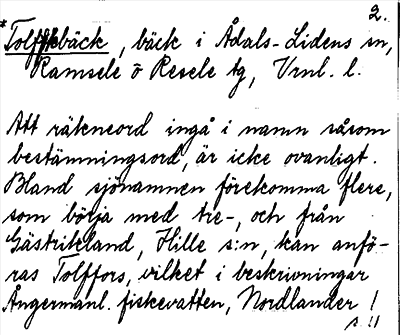 2.
*Tolffbäck, bäck i Ådals-Lidens sn,
Ramsele o Resele tg, Vrnl. l.
Att räkneord ingå i namn såsom
bestämningsord, är icke ovanligt.
Bland sjönamnen förekomma flere,
som börja med tre-, och från
Gästrikeland, Hille s:n, kan anfö-
ras Tolffors, vilket i beskrivningar
Ångermanl. fiskevatten, Nordlander!
s. 11